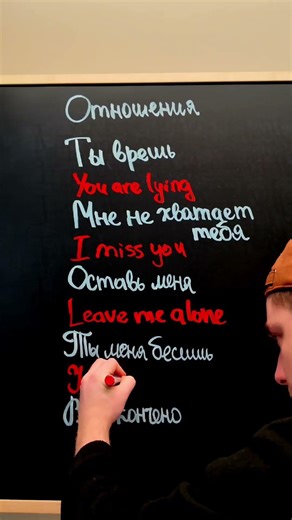 Отношения
Ты врешь
You are lying
Мне не хватает
тебя
I miss you
Оставь меня
Leave me alone
Ты меня бесишь
кончено